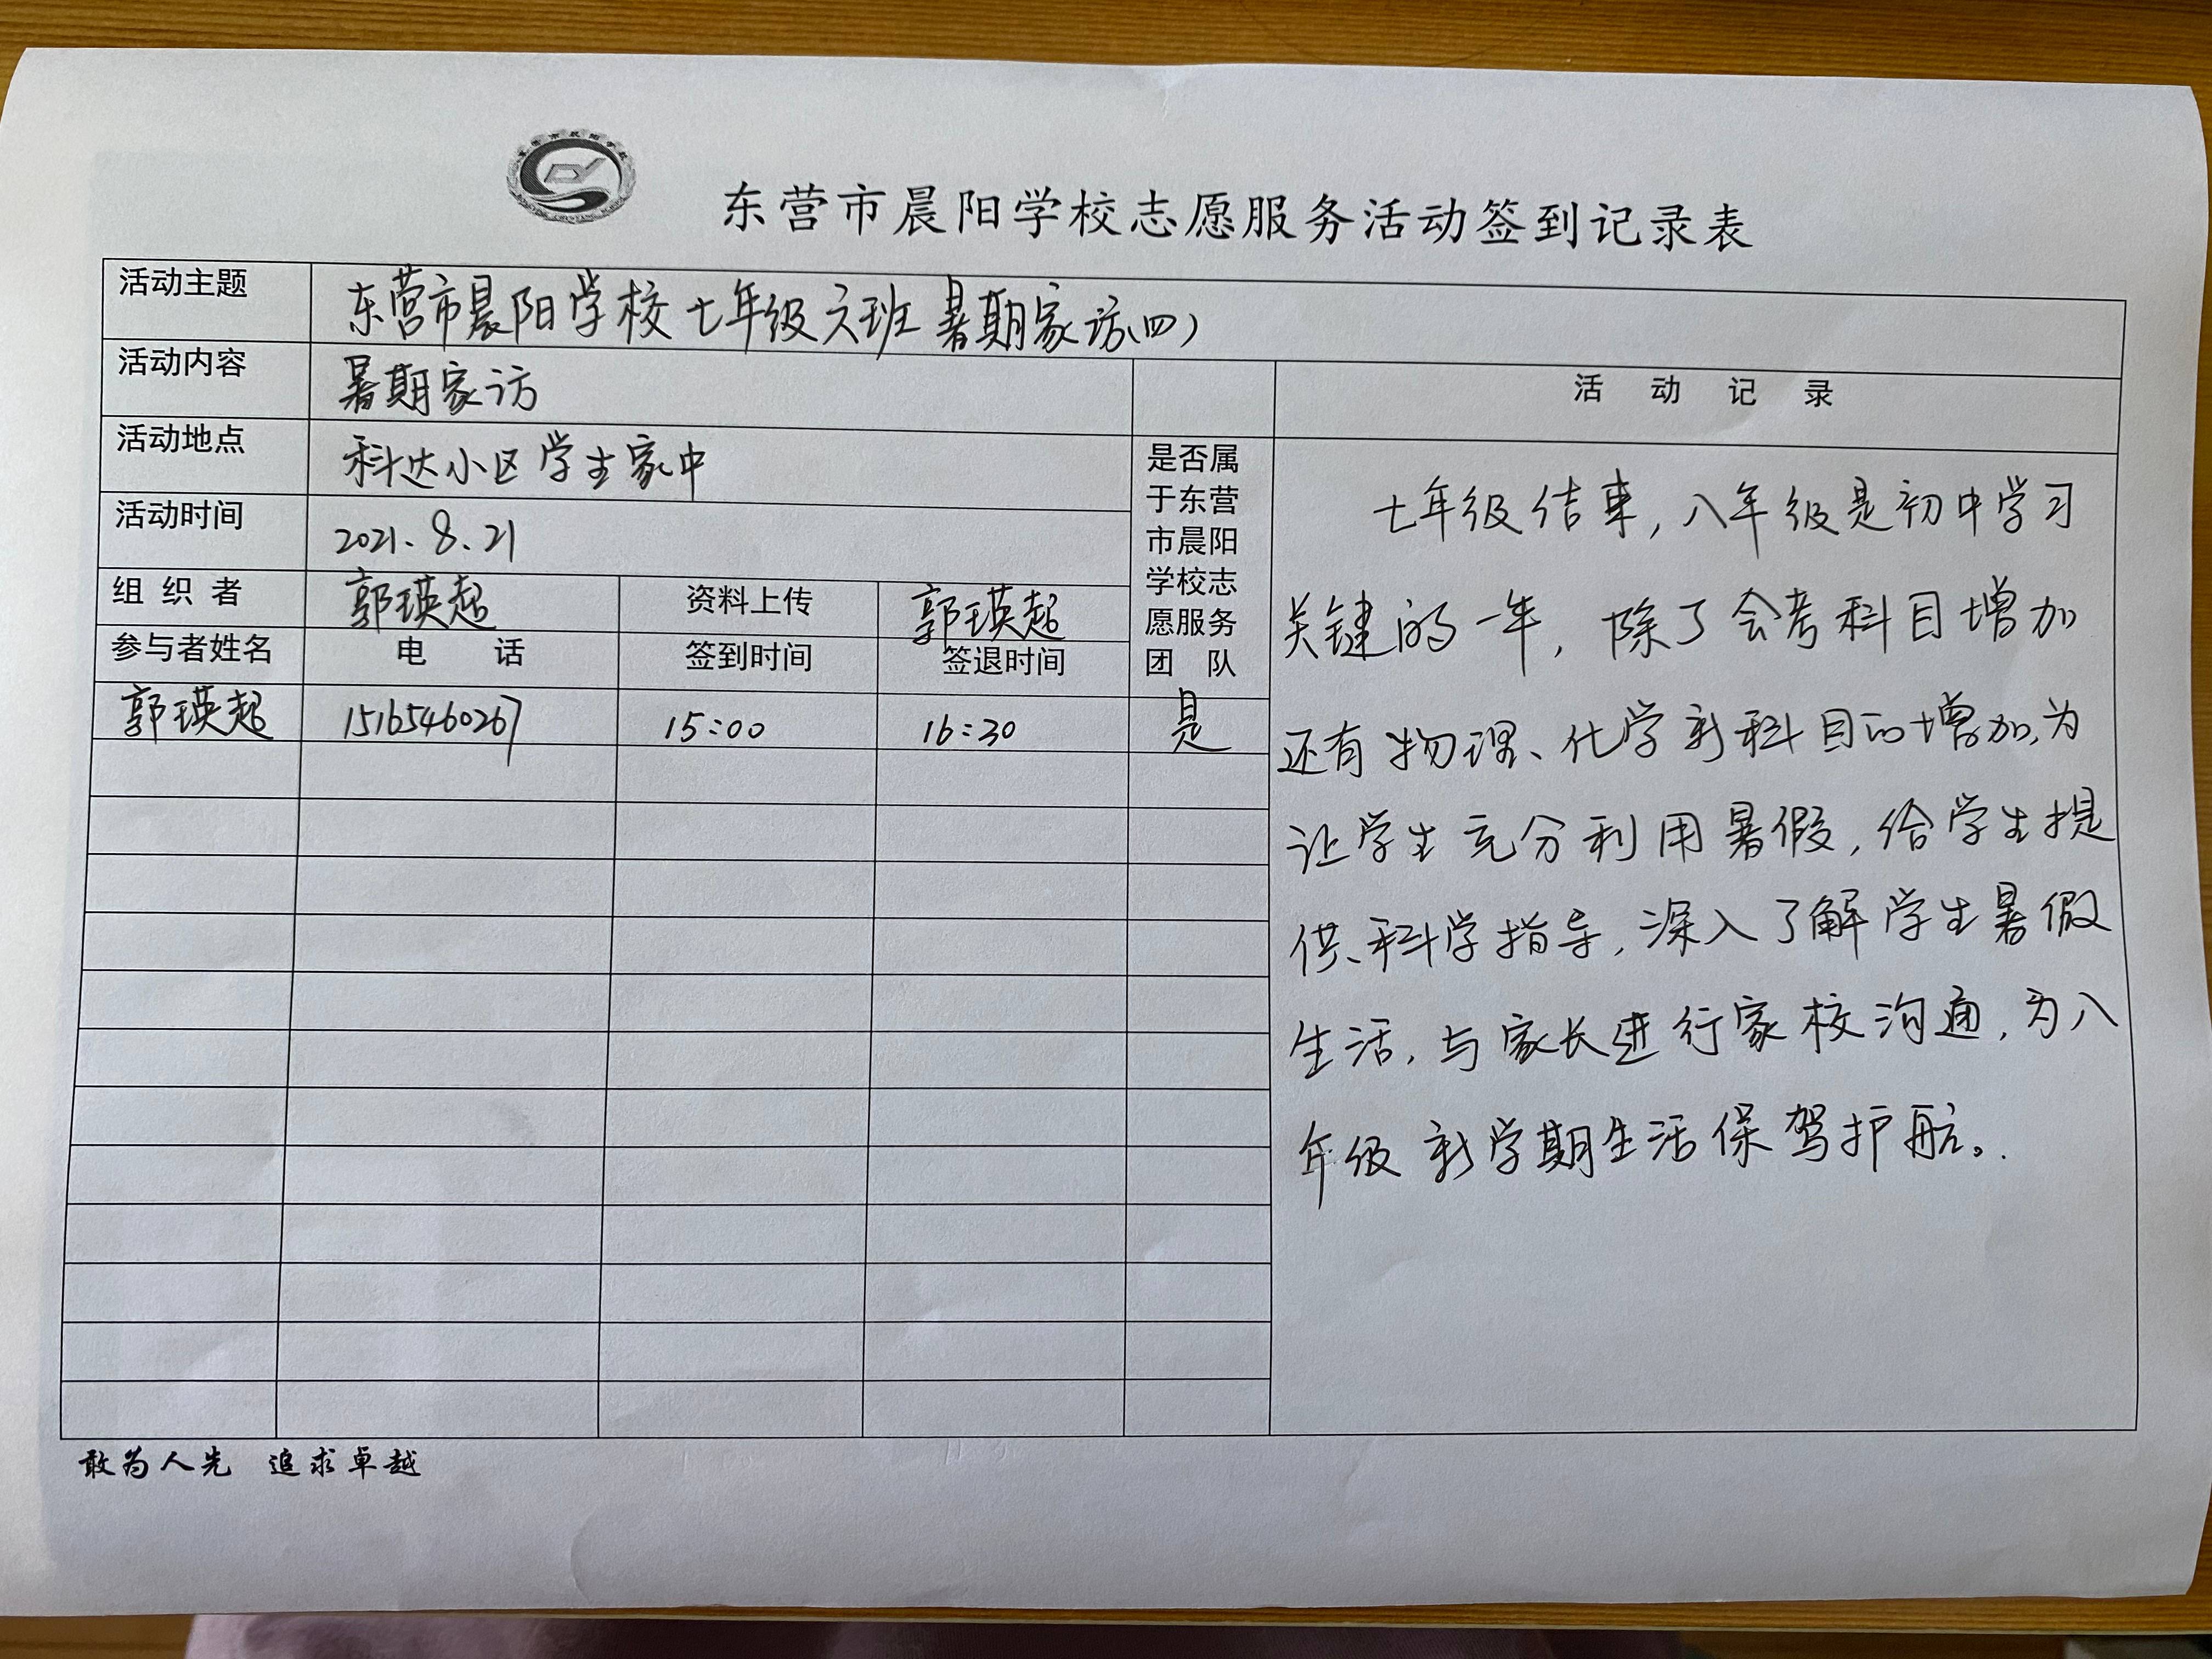 东营市晨阳学校志愿服务活动签到记录表
活动主题 东营市晨阳学校七年级六班暑期家访(四)
活动内容 暑期家访
活动记录
活动地点 科达小区学生家中
活动时间 2021.8.21
组织者 郭瑛超 资料上传 郭瑛超
参与者姓名 电话 签到时间 签退时间
是否属
于东营
市晨阳
学校志
愿服务
团队
郭瑛超 15165460267 15:00 16:30 是
七年级结束,八年级是初中学习
关键的一年,除了会考科目增加
还有物理、化学新科目的增加,为
让学生充分利用暑假,给学生提
供科学指导,深入了解学生暑假
生活,与家长进行家校沟通,为八
年级新学期生活保驾护航。
敢为人先 追求卓越